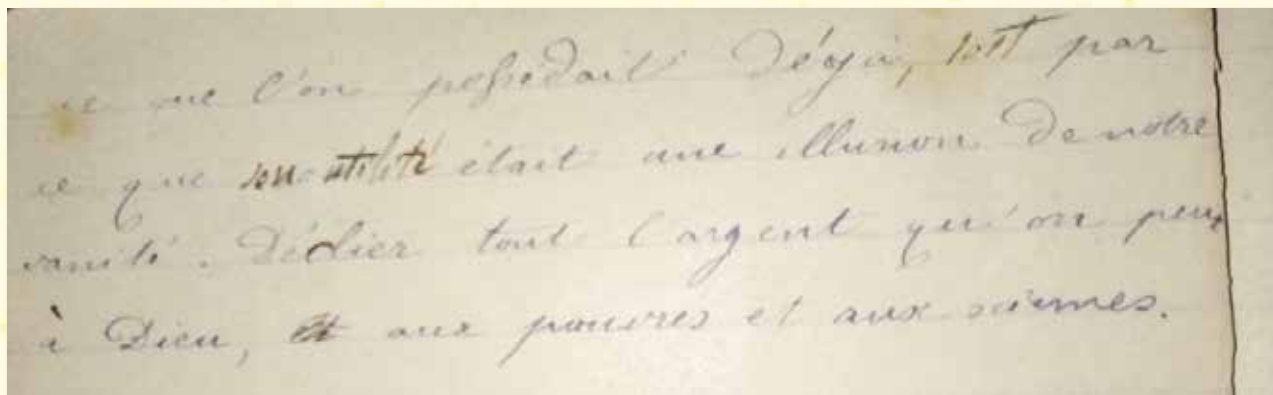 ce que l'on possédait déjà, soit par
ce que son utilité était une illusion de notre
vanité. Dédier tout l'argent qu'on peut
à Dieu, et aux pauvres et aux